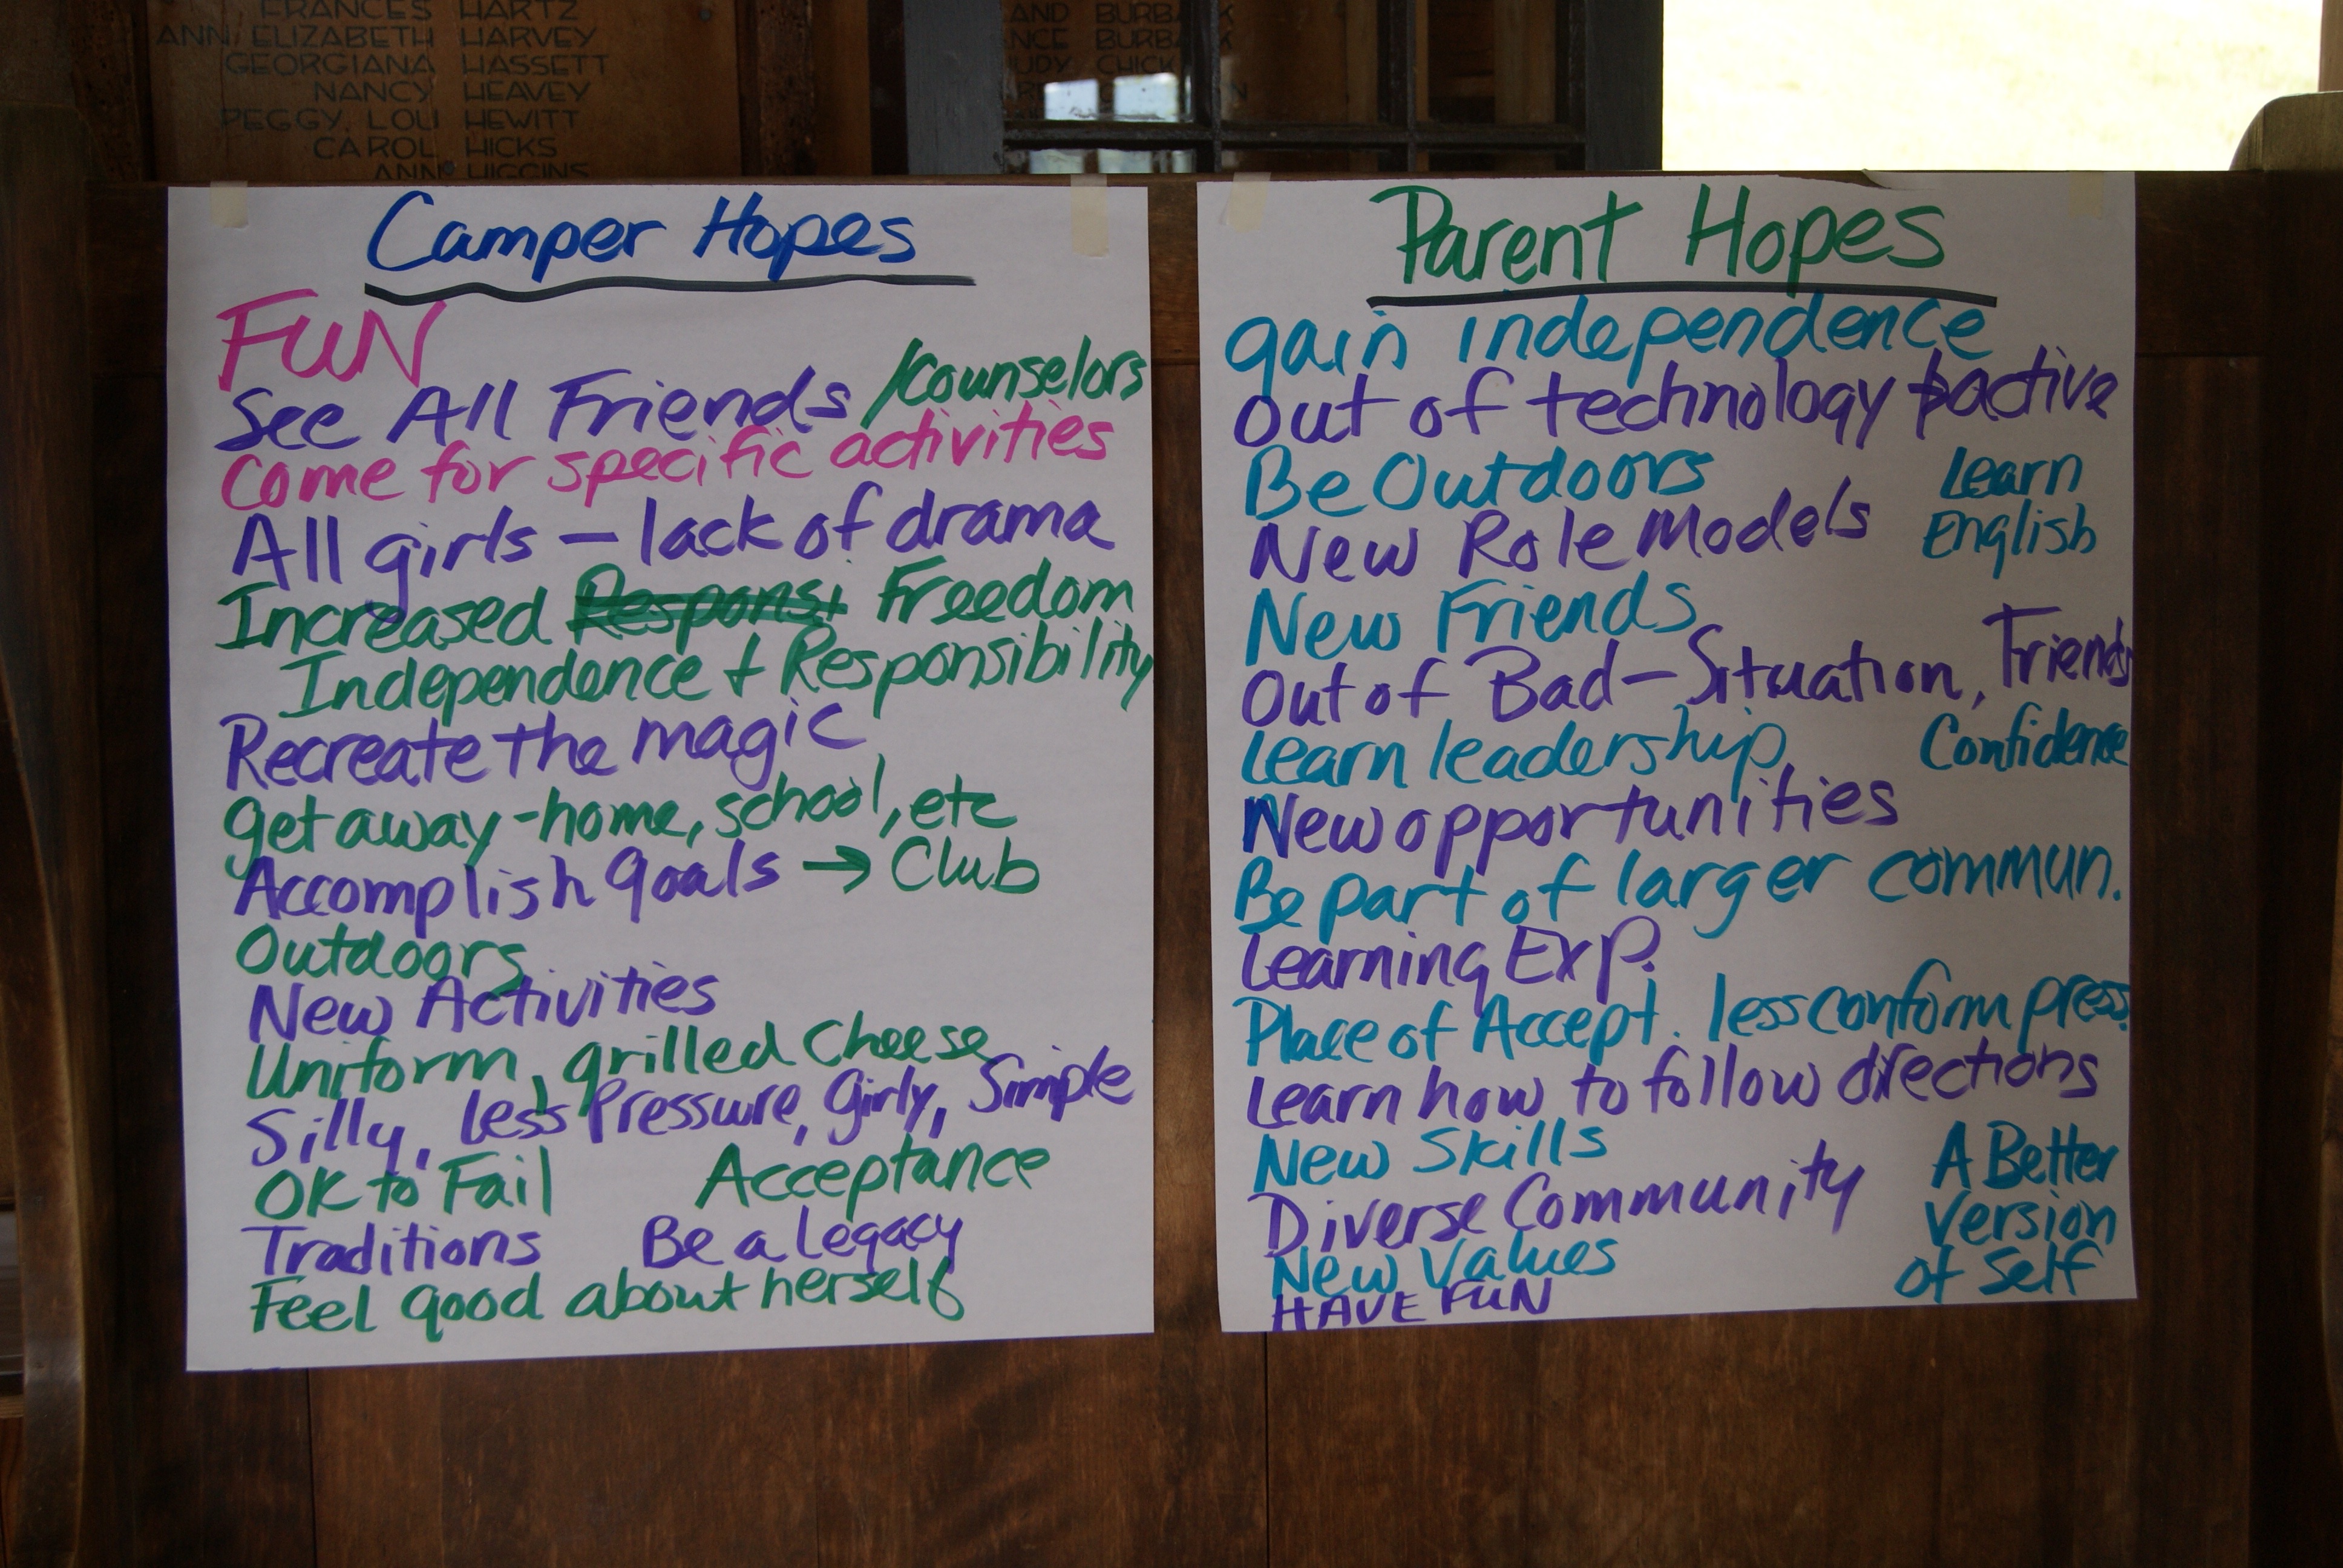 FRANCES HARTZ
ANN ELIZABETH HARVEY
GEORGIANA HASSETT
NANCY HEAVEY
PEGGY LOU HEWITT
CAROL HICKS
ANN HIGGINS
AND BURBANK
NCE BURBANK
JUDY CHICK
Camper Hopes
FUN
See All Friends /Counselors
Come for specific activities
All girls – lack of drama
Increased Responsi Freedom
Independence + Responsibility
Recreate the magic
get away - home, school, etc
Accomplish goals → Club
Outdoors
New Activities
Uniform, grilled cheese
Silly, less Pressure, Girly, Simple
OK to Fail Acceptance
Traditions Be a legacy
Feel good about herself
Parent Hopes
gain independence
Out of technology active
Be Outdoors
Learn
English
New Role Models
New Friends
Out of Bad – Situation, Friends
Learn leadership Confidence
New opportunities
Be part of larger commun.
Learning Exp.
Place of Accept. less conform press.
Learn how to follow directions
New Skills
Diverse Community
New Values
HAVE FUN
A Better
Version
of Self